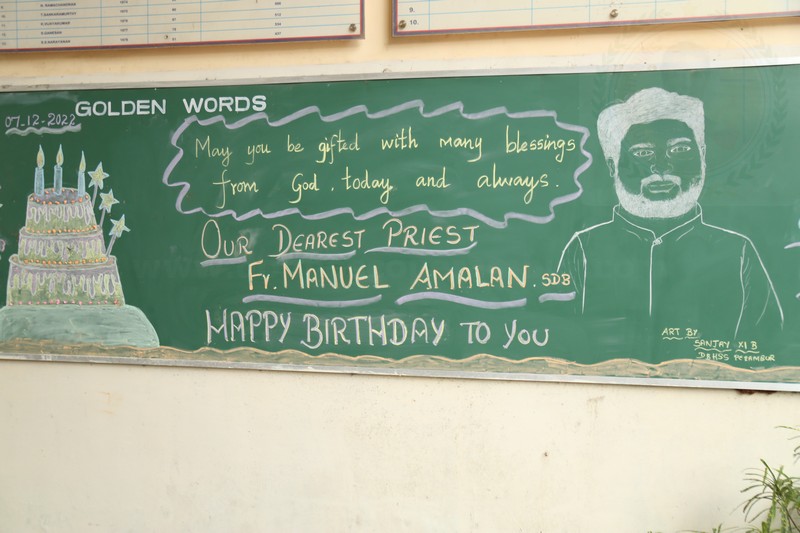 07-12-2022
GOLDEN WORDS
May you be gifted with many blessings
from God, today and always.
OUR DEAREST PRIEST
Fr. MANUEL AMALAN. SDB
HAPPY BIRTHDAY TO YOU
ART BY
SANJAY XI B
DBHSS PERAMBUR
9.
10.